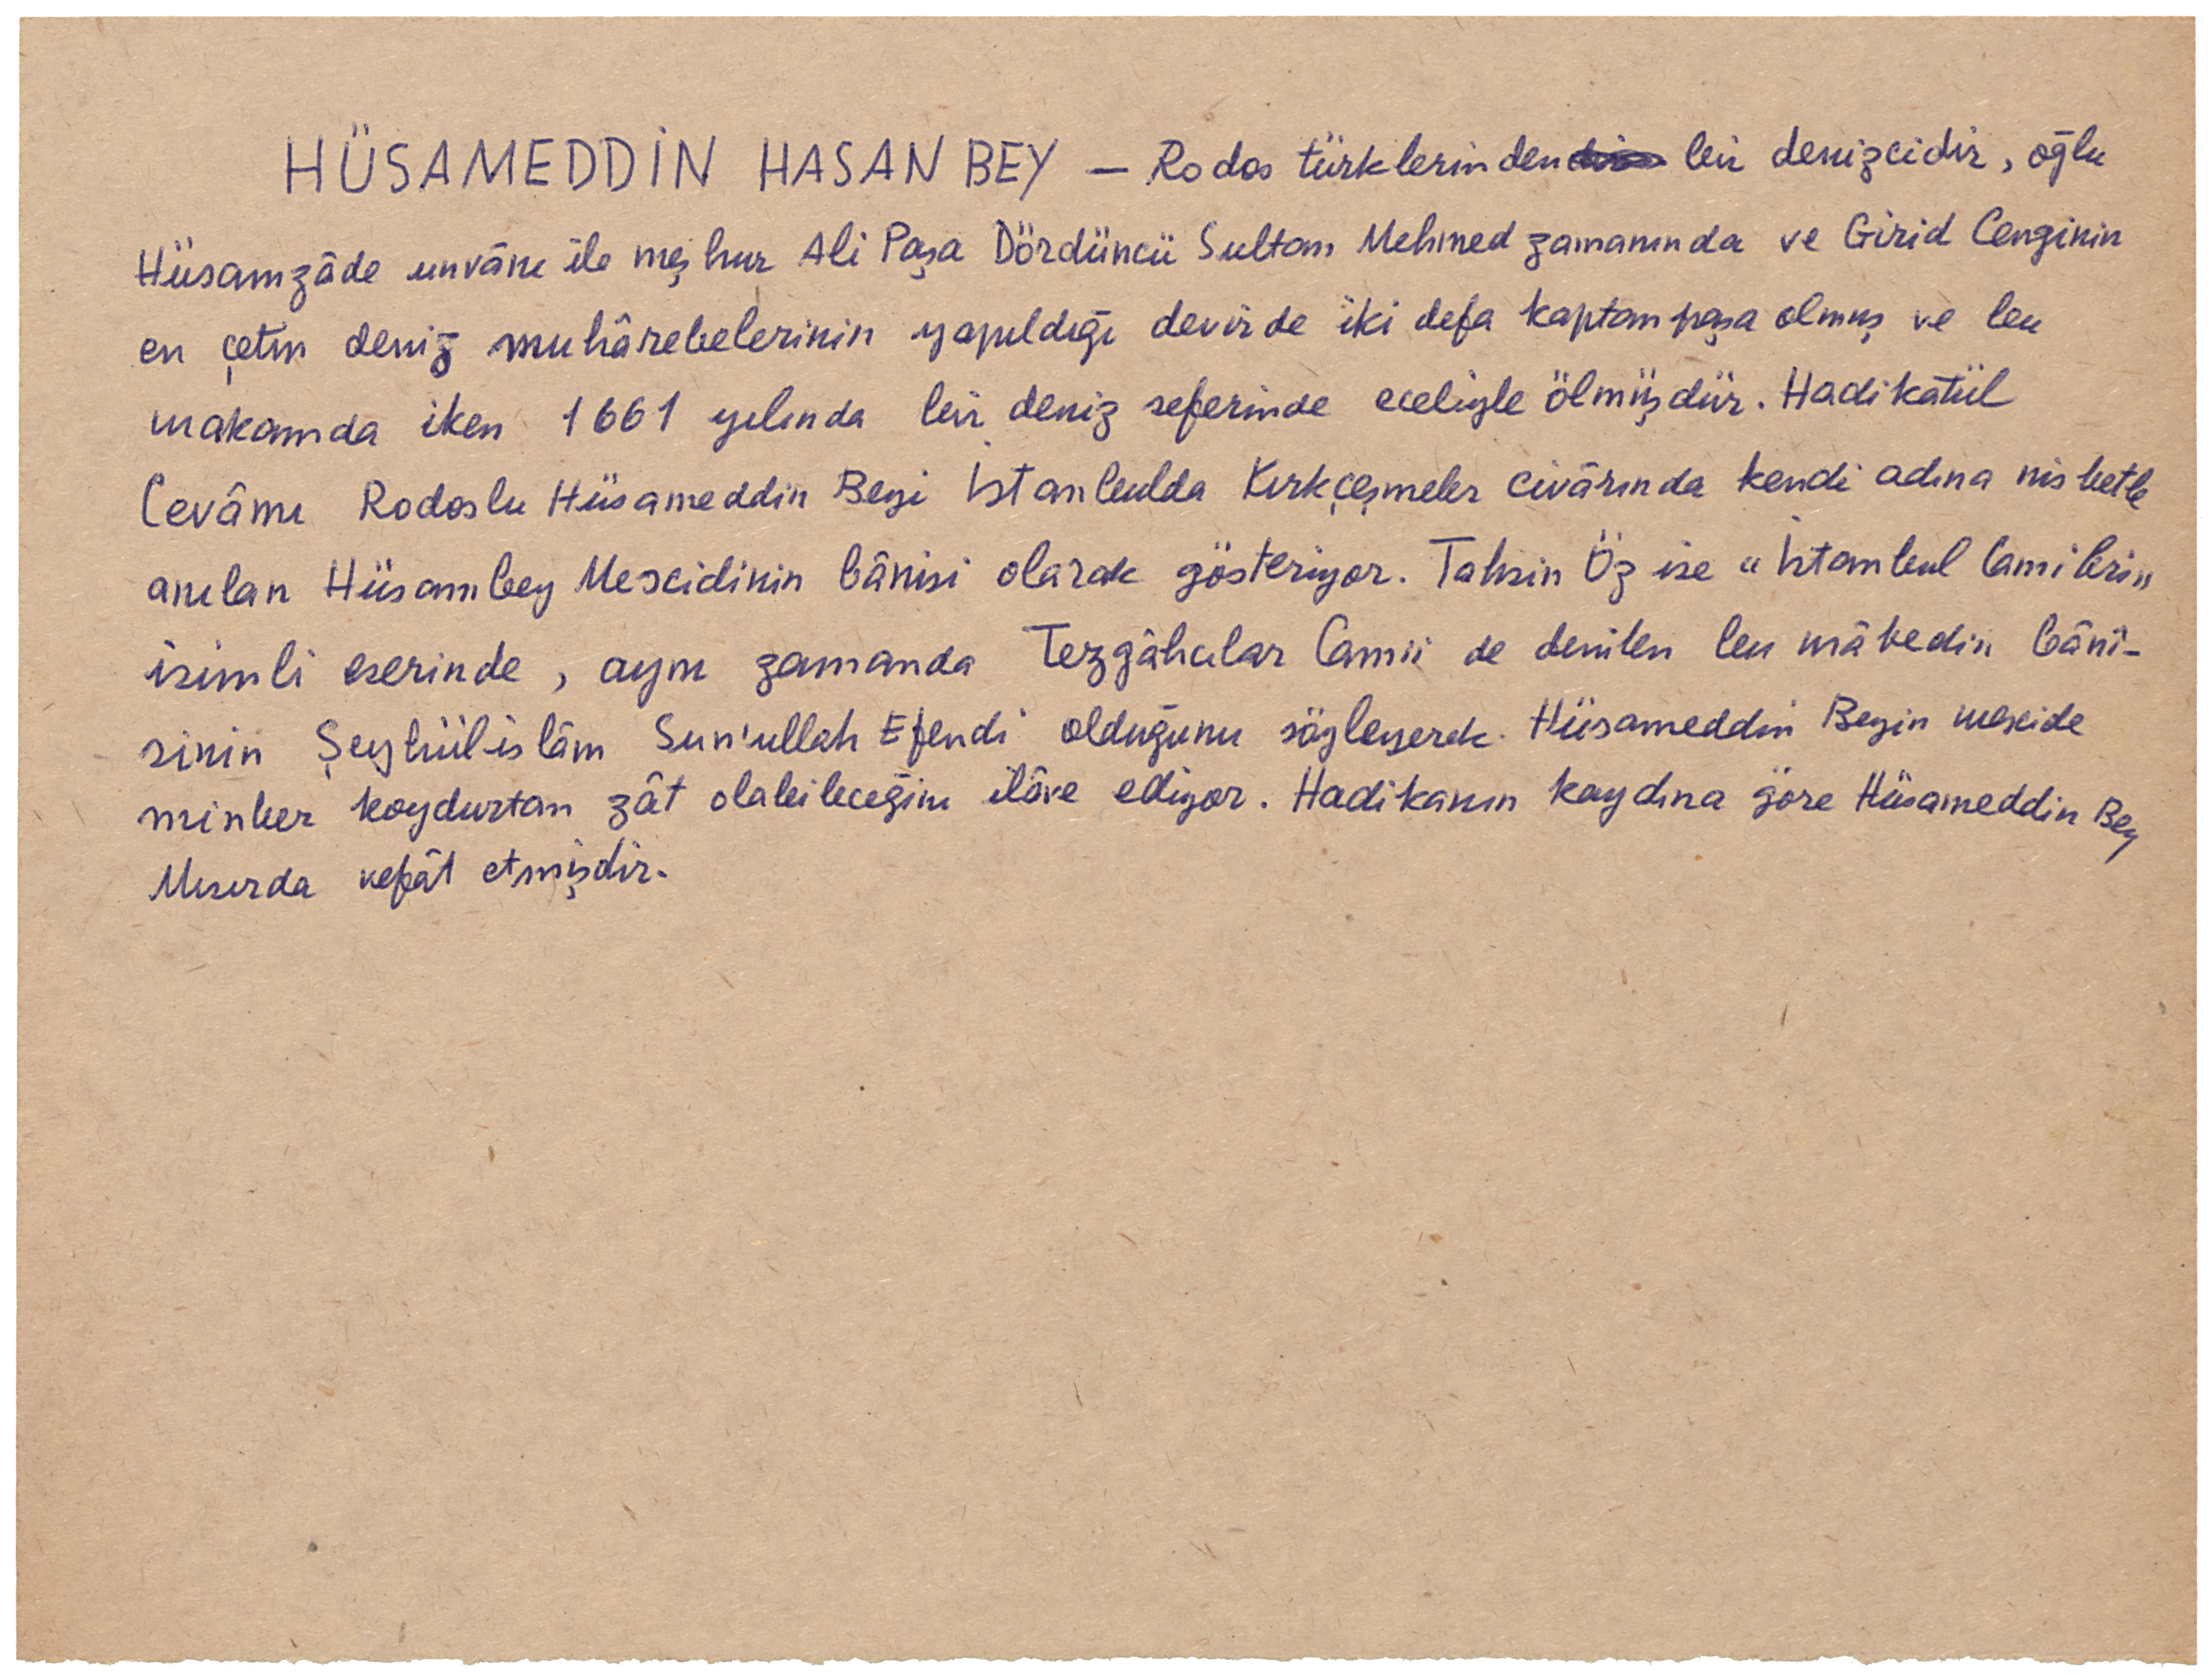 HÜSAMEDDİN HASAN BEY — Rodos türklerinden bir denizcidir, oğlu
Hüsamzâde unvânı ile meşhur Ali Paşa Dördüncü Sultan Mehmed zamanında ve Girid Cenginin
en çetin deniz muhârebelerinin yapıldığı devirde iki defa kaptanpaşa olmuş ve bu
makamda iken 1661 yılında bir deniz seferinde eceliyle ölmüşdür. Hadikatül
Cevâmi Rodoslu Hüsameddin Beyi İstanbulda Kırkçeşmeler civârında kendi adına nisbetle
anılan Hüsambey Mescidinin bânisi olarak gösteriyor. Tahsin Öz ise "İstanbul Camileri"
isimli eserinde, aynı zamanda Tezgâhcılar Camii de denilen bu mâbedin bâni-
sinin Şeyhülislâm Sun'ullah Efendi olduğunu söyleyerek Hüsameddin Beyin mescide
minber koydurtan zât olabileceğini ilâve ediyor. Hadikanın kaydına göre Hüsameddin Bey
Mısırda vefât etmişdir.